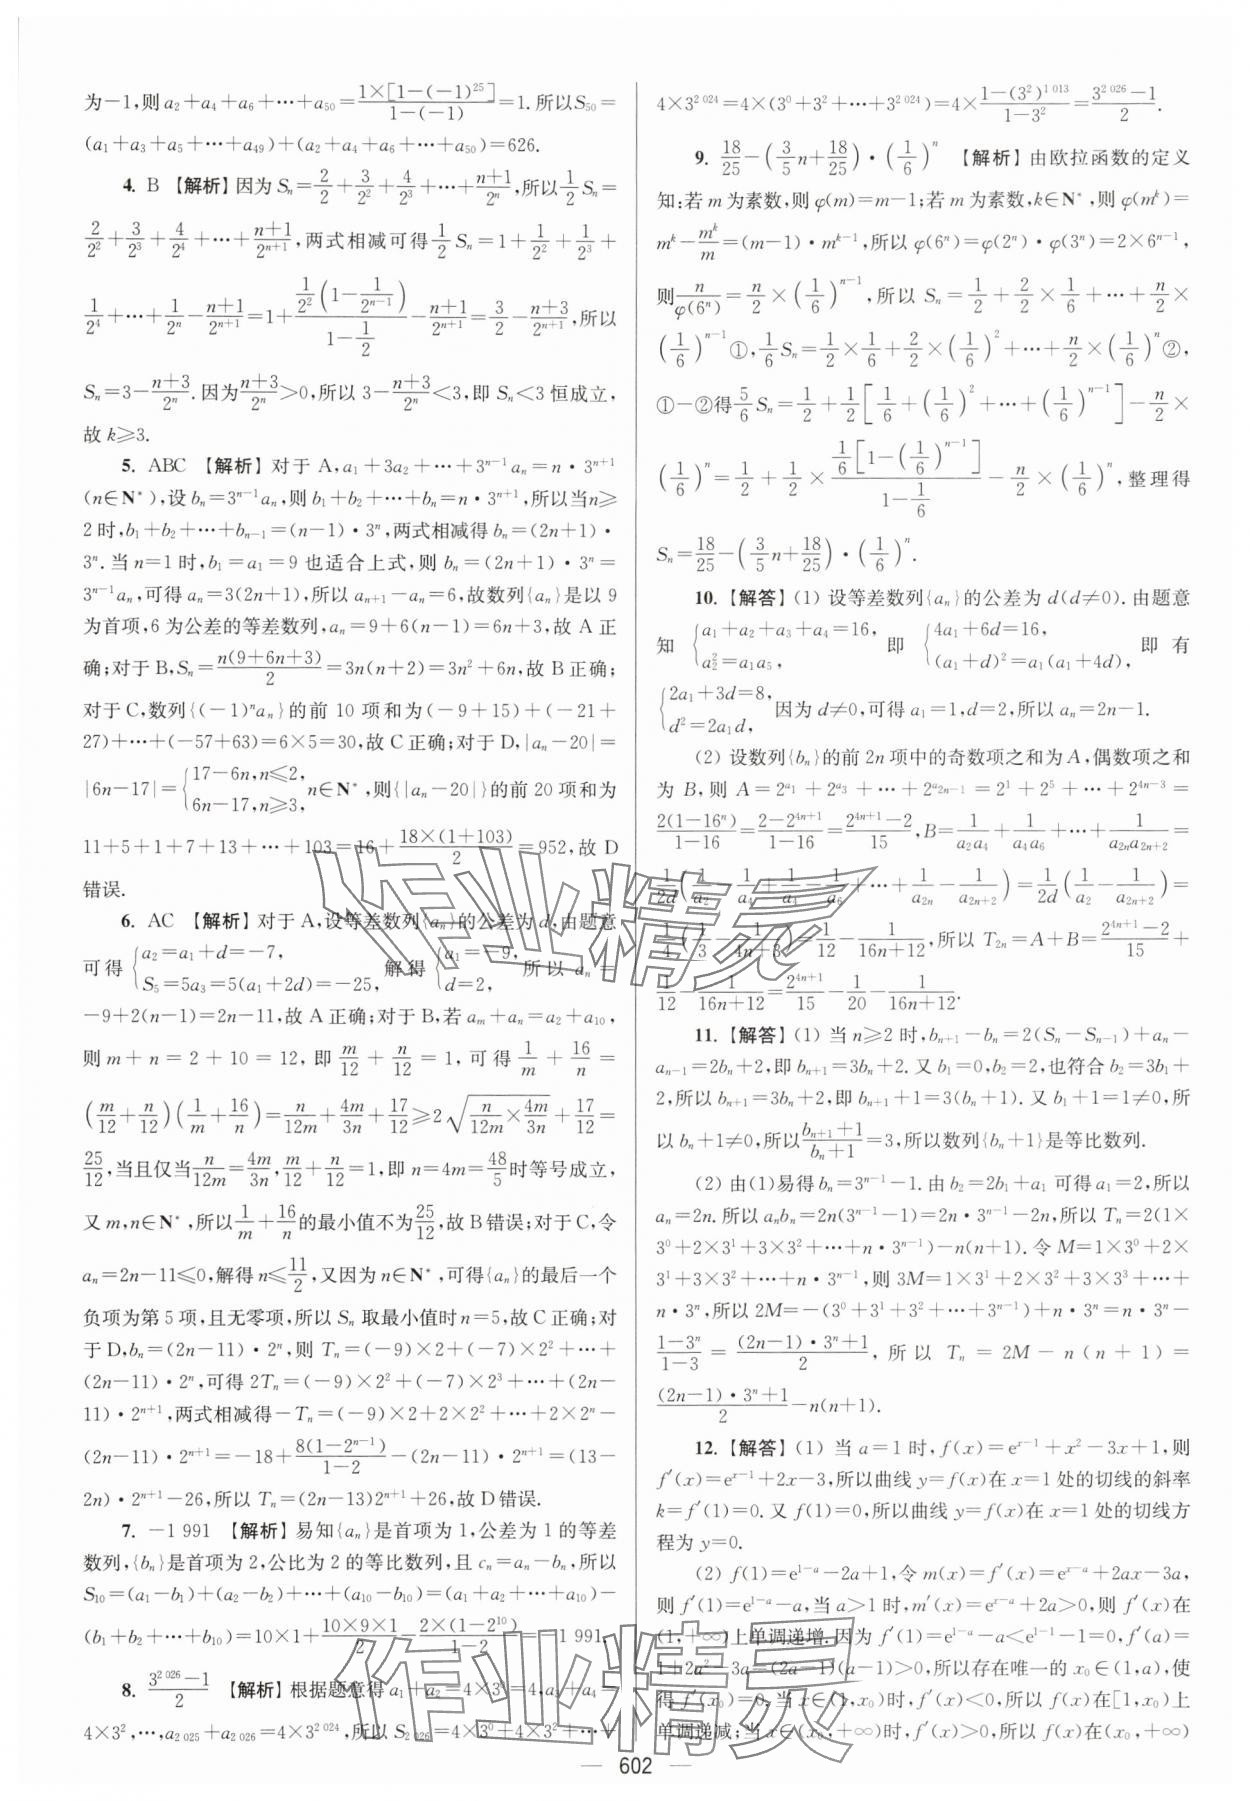 为−1,则 a₂+a₄+a₆+⋯+a₅₀=\frac{1×[1−(−1)^{25}]}{1−(−1)}=1.所以S₅₀=
(a₁+a₃+a₅+⋯+a₄₉)+(a₂+a₄+a₆+⋯+a₅₀)=626.
4. B 【解析】因为 Sₙ=\frac{2}{2}+\frac{3}{2^2}+\frac{4}{2^3}+⋯+\frac{n+1}{2^n},所以\frac{1}{2}Sₙ=
\frac{2}{2^2}+\frac{3}{2^3}+\frac{4}{2^4}+⋯+\frac{n+1}{2^{n+1}},两式相减可得\frac{1}{2}Sₙ=1+\frac{1}{2^2}+\frac{1}{2^3}+
\frac{1}{2^4}+⋯+\frac{1}{2^n}−\frac{n+1}{2^{n+1}}=1+\frac{\frac{1}{2^2}(1−\frac{1}{2^{n−1}})}{1−\frac{1}{2}}−\frac{n+1}{2^{n+1}}=\frac{3}{2}−\frac{n+3}{2^{n+1}},所以
Sₙ=3−\frac{n+3}{2^n}.因为\frac{n+3}{2^n}>0,所以 3−\frac{n+3}{2^n}<3,即 Sₙ<3 恒成立,
故 k⩾3.
5. ABC 【解析】对于 A,a₁+3a₂+⋯+3^{n−1}aₙ=n·3^{n+1}
(n∈N*),设 bₙ=3^{n−1}aₙ,则 b₁+b₂+⋯+bₙ=n·3^{n+1},所以当n⩾
2 时,b₁+b₂+⋯+b_{n−1}=(n−1)·3^n,两式相减得 bₙ=(2n+1)·
3^n.当 n=1 时,b₁=a₁=9 也适合上式,则 bₙ=(2n+1)·3^n=
3^{n−1}aₙ,可得 aₙ=3(2n+1),所以 a_{n+1}−aₙ=6,故数列{aₙ}是以 9
为首项,6 为公差的等差数列,aₙ=9+6(n−1)=6n+3,故 A 正
确;对于 B,Sₙ=\frac{n(9+6n+3)}{2}=3n(n+2)=3n²+6n,故 B 正确;
对于 C,数列{(−1)^n aₙ}的前 10 项和为(−9+15)+(−21+
27)+⋯+(−57+63)=6×5=30,故 C 正确;对于 D,|aₙ−20|=
|6n−17|={17−6n,n⩽2, 6n−17,n⩾3, n∈N*,则{|aₙ−20|}的前 20 项和为
11+5+1+7+13+⋯+103=16+\frac{18×(1+103)}{2}=952,故 D
错误.
6. AC 【解析】对于 A,设等差数列{aₙ}的公差为 d,由题意
可得{a₂=a₁+d=−7, S₅=5a₃=5(a₁+2d)=−25, 解得{a₁=−9, d=2, 所以 aₙ=
−9+2(n−1)=2n−11,故 A 正确;对于 B,若 aₘ+aₙ=a₂+a₁₀,
则 m+n=2+10=12,即\frac{m}{12}+\frac{n}{12}=1,可得\frac{1}{m}+\frac{16}{n}=
(\frac{m}{12}+\frac{n}{12})(\frac{1}{m}+\frac{16}{n})=\frac{n}{12m}+\frac{4m}{3n}+\frac{17}{12}⩾2\sqrt{\frac{n}{12m}×\frac{4m}{3n}}+\frac{17}{12}=
\frac{25}{12},当且仅当\frac{n}{12m}=\frac{4m}{3n},\frac{m}{12}+\frac{n}{12}=1,即 n=4m=\frac{48}{5}时等号成立,
又 m,n∈N*,所以\frac{1}{m}+\frac{16}{n}的最小值不为\frac{25}{12},故 B 错误;对于 C,令
aₙ=2n−11⩽0,解得 n⩽\frac{11}{2},又因为 n∈N*,可得{aₙ}的最后一个
负项为第 5 项,且无零项,所以 Sₙ 取最小值时 n=5,故 C 正确;对
于 D,bₙ=(2n−11)·2^n,则 Tₙ=(−9)×2+(−7)×2²+⋯+
(2n−11)·2^n,可得 2Tₙ=(−9)×2²+(−7)×2³+⋯+(2n−
11)·2^{n+1},两式相减得−Tₙ=(−9)×2+2×2²+⋯+2×2^n−
(2n−11)·2^{n+1}=−18+\frac{8(1−2^{n−1})}{1−2}−(2n−11)·2^{n+1}=(13−
2n)·2^{n+1}−26,所以 Tₙ=(2n−13)2^{n+1}+26,故 D 错误.
7. −1 991 【解析】易知{aₙ}是首项为 1,公差为 1 的等差
数列,{bₙ}是首项为 2,公比为 2 的等比数列,且 cₙ=aₙ−bₙ,所以
S₁₀=(a₁−b₁)+(a₂−b₂)+⋯+(a₁₀−b₁₀)=(a₁+a₂+⋯+a₁₀)−
(b₁+b₂+⋯+b₁₀)=10×1+\frac{10×9×1}{2}−\frac{2×(1−2^{10})}{1−2}=−1 991.
8. \frac{3^{2 026}−1}{2} 【解析】根据题意得 a₁+a₂=4×3⁰=4,a₃+a₄=
4×3²,⋯,a_{2 025}+a_{2 026}=4×3^{2 024},所以 S_{2 026}=4×3⁰+4×3²+⋯+
4×3^{2 024}=4×(3⁰+3²+⋯+3^{2 024})=4×\frac{1−(3²)^{1 013}}{1−3²}=\frac{3^{2 026}−1}{2}.
9. \frac{18}{25}−(\frac{3}{5}n+\frac{18}{25})·(\frac{1}{6})^n 【解析】由欧拉函数的定义
知:若 m 为素数,则 φ(m)=m−1;若 m 为素数,k∈N*,则 φ(m^k)=
m^k−\frac{m^k}{m}=(m−1)·m^{k−1},所以 φ(6^n)=φ(2^n)·φ(3^n)=2×6^{n−1},
则\frac{n}{φ(6^n)}=\frac{n}{2}×(\frac{1}{6})^{n−1},所以 Sₙ=\frac{1}{2}+\frac{2}{2}×\frac{1}{6}+⋯+\frac{n}{2}×
(\frac{1}{6})^{n−1}①,\frac{1}{6}Sₙ=\frac{1}{2}×\frac{1}{6}+\frac{2}{2}×(\frac{1}{6})²+⋯+\frac{n}{2}×(\frac{1}{6})^n②,
①−②得\frac{5}{6}Sₙ=\frac{1}{2}+\frac{1}{2}[\frac{1}{6}+(\frac{1}{6})²+⋯+(\frac{1}{6})^{n−1}]−\frac{n}{2}×
(\frac{1}{6})^n=\frac{1}{2}+\frac{1}{2}×\frac{\frac{1}{6}[1−(\frac{1}{6})^{n−1}]}{1−\frac{1}{6}}−\frac{n}{2}×(\frac{1}{6})^n,整理得
Sₙ=\frac{18}{25}−(\frac{3}{5}n+\frac{18}{25})·(\frac{1}{6})^n.
10. 【解答】(1) 设等差数列{aₙ}的公差为 d(d≠0).由题意
知{a₁+a₂+a₃+a₄=16, a₂²=a₁a₅, 即{4a₁+6d=16, (a₁+d)²=a₁(a₁+4d), 即有
{2a₁+3d=8, d²=2a₁d, 因为 d≠0,可得 a₁=1,d=2,所以 aₙ=2n−1.
(2) 设数列{bₙ}的前 2n 项中的奇数项之和为 A,偶数项之和
为 B,则 A=2^{a₁}+2^{a₃}+⋯+2^{a_{2n−1}}=2¹+2⁵+⋯+2^{4n−3}=
\frac{2(1−16^n)}{1−16}=\frac{2−2^{4n+1}}{1−16}=\frac{2^{4n+1}−2}{15},B=\frac{1}{a₂a₄}+\frac{1}{a₄a₆}+⋯+\frac{1}{a_{2n}a_{2n+2}}=
\frac{1}{2d}(\frac{1}{a₂}−\frac{1}{a₄}+\frac{1}{a₄}−\frac{1}{a₆}+⋯+\frac{1}{a_{2n}}−\frac{1}{a_{2n+2}})=\frac{1}{2d}(\frac{1}{a₂}−\frac{1}{a_{2n+2}})=
\frac{1}{4}(\frac{1}{3}−\frac{1}{4n+3})=\frac{1}{12}−\frac{1}{16n+12},所以 T_{2n}=A+B=\frac{2^{4n+1}−2}{15}+
\frac{1}{12}−\frac{1}{16n+12}=\frac{2^{4n+1}}{15}−\frac{1}{20}−\frac{1}{16n+12}.
11. 【解答】(1) 当 n⩾2 时,b_{n+1}−bₙ=2(Sₙ−S_{n−1})+aₙ−
a_{n−1}=2bₙ+2,即 b_{n+1}=3bₙ+2.又 b₁=0,b₂=2,也符合 b₂=3b₁+
2,所以 b_{n+1}=3bₙ+2,即 b_{n+1}+1=3(bₙ+1).又 b₁+1=1≠0,所
以 bₙ+1≠0,所以\frac{b_{n+1}+1}{bₙ+1}=3,所以数列{bₙ+1}是等比数列.
(2) 由(1)易得 bₙ=3^{n−1}−1.由 b₂=2b₁+a₁ 可得 a₁=2,所以
aₙ=2n.所以 aₙbₙ=2n(3^{n−1}−1)=2n·3^{n−1}−2n,所以 Tₙ=2(1×
3⁰+2×3¹+3×3²+⋯+n·3^{n−1})−n(n+1).令 M=1×3⁰+2×
3¹+3×3²+⋯+n·3^{n−1},则 3M=1×3¹+2×3²+3×3³+⋯+
n·3^n,所以 2M=−(3⁰+3¹+3²+⋯+3^{n−1})+n·3^n=n·3^n−
\frac{1−3^n}{1−3}=\frac{(2n−1)·3^n+1}{2},所以 Tₙ=2M−n(n+1)=
\frac{(2n−1)·3^n+1}{2}−n(n+1).
12. 【解答】(1) 当 a=1 时,f(x)=e^{x−1}+x²−3x+1,则
f′(x)=e^{x−1}+2x−3,所以曲线 y=f(x)在 x=1 处的切线的斜率
k=f′(1)=0.又 f(1)=0,所以曲线 y=f(x)在 x=1 处的切线方
程为 y=0.
(2) f(1)=e^{1−a}−2a+1,令 m(x)=f′(x)=e^{x−a}+2ax−3a,
则 f′(1)=e^{1−a}−a,当 a>1 时,m′(x)=e^{x−a}+2a>0,则 f′(x)在
(1,+∞)上单调递增.因为 f′(1)=e^{1−a}−a<e^{1−1}−1=0,f′(a)=
1+2a²−3a=(2a−1)(a−1)>0,所以存在唯一的 x₀∈(1,a),使
得 f′(x₀)=0.当 x∈(1,x₀)时,f′(x)<0,所以 f(x)在[1,x₀)上
单调递减;当 x∈(x₀,+∞)时,f′(x)>0,所以 f(x)在(x₀,+∞)
602
作业精灵
作业精灵